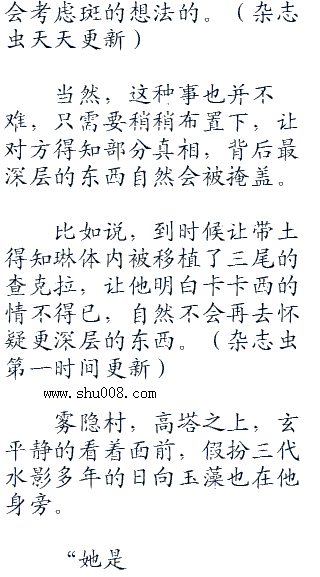 会考虑斑的想法的。（杂志
虫天天更新）
当然，这种事也并不
难，只需要稍稍布置下，让
对方得知部分真相，背后最
深层的东西自然会被掩盖。
比如说，到时候让带土
得知琳体内被移植了三尾的
查克拉，让他明白卡卡西的
情不得已，自然不会再去怀
疑更深层的东西。（杂志虫
第一时间更新）
www.shu008.com
雾隐村，高塔之上，玄
平静的看着面前，假扮三代
水影多年的日向玉藻也在他
身旁。
“她是